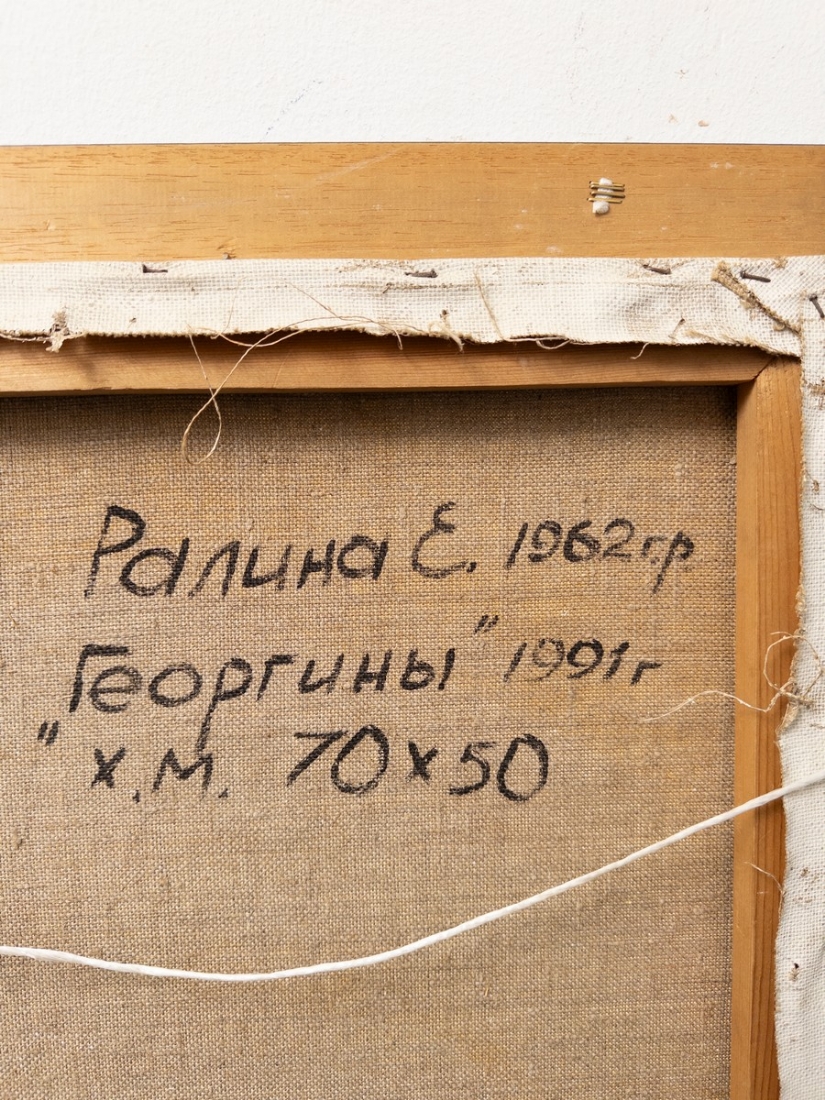 Ралина Е. 1962г.р
"Георгины" 1991г
х.м. 70х50